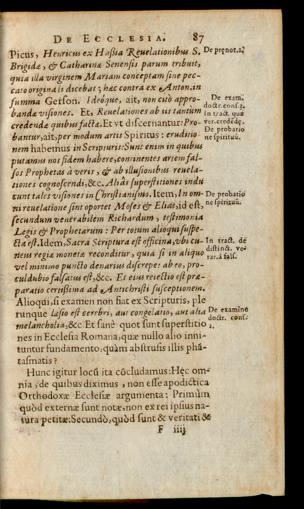 DE ECCLESIA. 87
Picus, Henricus ex Hassia Reuelationibus S.
Brigidæ, & Catharinæ Senensis parum tribuit,
quia illa virginem Mariam conceptam sine pec-
cato originali dicebat; hæc contra ex Anton. in
summa Gerson. Ideóque, ait, non cuò appro-
bandæ visiones. Et, Reuelationes ab iis tantùm
credendæ quibus factæ. Et vt discernantur: Pro-
bantur, ait, per modum artis Spiritus: eruditio-
nem habemus in Scripturis: Sunt enim in quibus
putamus nos fidem habere, continentes artem fal-
sos Prophetas à veris, & ab illusionibus reuela-
tiones cognoscendi, &c. Aliàs superstitiones indu
cunt tales visiones in Christianismo. Item, In om-
ni reuelatione sint oportet Moses & Elias, id est,
secundum venerabilem Richardum, testimonia
Legis & Prophetarum: Per totum alioqui suspe-
cta est. Idem, Sacra Scriptura est officina, vbi cu-
neus regiæ monetæ reconditur, quia si in aliquo
vel minimo puncto denarius discrepet ab eo, pro-
culdubio falsatus est, &c. Et eius reiectio est præ-
paratio certissima ad Antichristi susceptionem.
Alioqui, si examen non fiat ex Scripturis, ple
runque læsio est cerebri, aut congelatio, aut alia
melancholia, &c. Et sanè quot sunt superstitio
nes in Ecclesia Romana, quæ nullo alio inni-
tuntur fundamento, quàm abstrusis illis phã-
tasmatis?
Hunc igitur locũ ita cõcludamus: Hęc om-
nia, de quibus diximus, non esse apodictica
Orthodoxæ Ecclesiæ argumenta: Primùm
quòd externæ sunt notæ, non ex rei ipsius na-
tura petitæ: Secundò, quòd sunt & veritati &
F iiij
De prænot. 2.
De exam.
doctr. cons. 5.
In tract. quæ
ver. credẽdę.
De probatio
ne spirituũ.
De probatio
ne spirituũ.
In tract. de
distinct. ve-
rar. à fals.
De examine
doctr. cons.
2.